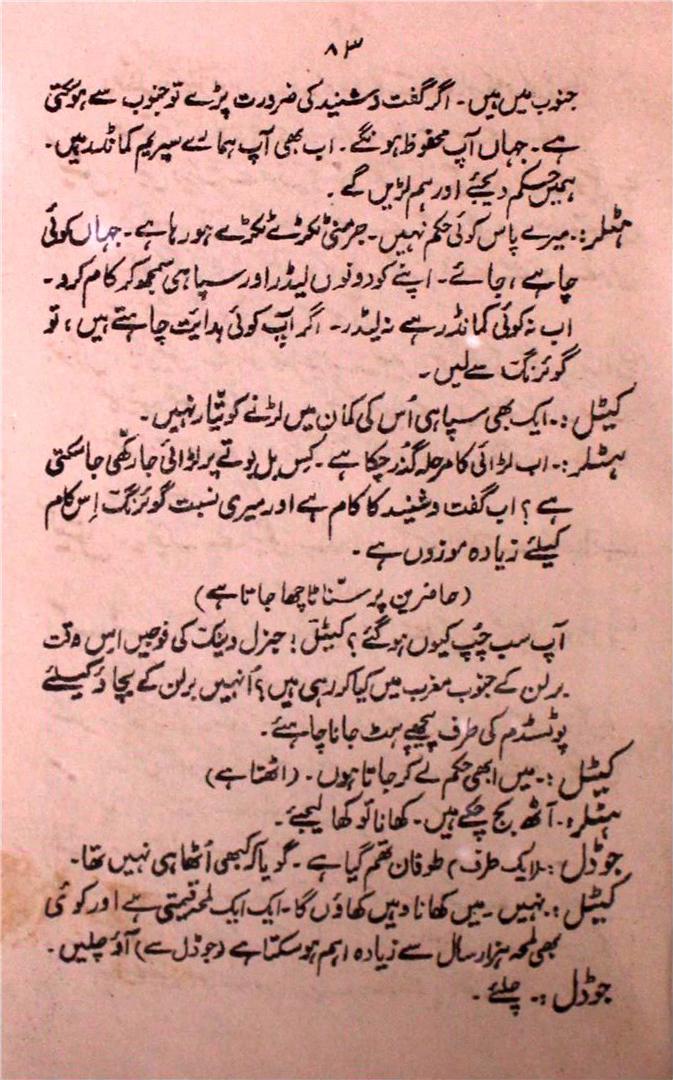 ۸۳
جنوب میں ہیں۔ اگر گفت و شنید کی ضرورت پڑے تو جنوب سے ہو سکتی
ہے۔ جہاں آپ محفوظ ہونگے۔ اب بھی آپ ہمارے سپریم کمانڈر ہیں۔
ہمیں حکم دیجئے اور ہم لڑیں گے۔
ہٹلر:۔ میرے پاس کوئی حکم نہیں۔ جرمنی ٹکڑے ٹکڑے ہو رہا ہے۔ جہاں کوئی
چاہے، جائے۔ اپنے کو دونوں لیڈر اور سپاہی سمجھ کر کام کرو۔
اب نہ کوئی کمانڈر ہے نہ لیڈر۔ اگر آپ کوئی ہدایت چاہتے ہیں، تو
گوئرنگ سے لیں۔
کیٹل:۔ ایک بھی سپاہی اُس کی کمان میں لڑنے کو تیّار نہیں۔
ہٹلر:۔ اب لڑائی کا مرحلہ گذر چکا ہے۔ کس بل بوتے پر لڑائی جا رکھی جا سکتی
ہے؟ اب گفت و شنید کا کام ہے اور میری نسبت گوئرنگ اِس کام
کیلئے زیادہ موزوں ہے۔
(حاضرین پر سنّاٹا چھا جاتا ہے)
آپ سب چُپ کیوں ہو گئے؟ کیٹل! جنرل وینک کی فوجیں اس وقت
برلن کے جنوب مغرب میں کیا کر رہی ہیں؟ اُنہیں برلن کے بچاؤ کیلئے
پوٹسڈم کی طرف پیچھے ہٹ جانا چاہئے۔
کیٹل:۔ میں ابھی حکم لے کر جاتا ہوں۔ (اٹھتا ہے)
ہٹلر۔ آٹھ بج چکے ہیں۔ کھانا تو کھا لیجئے۔
جوڈل:۔ (ایک طرف) طوفان تھم گیا ہے۔ گویا کبھی اُٹھا ہی نہیں تھا۔
کیٹل:۔ نہیں۔ میں کھانا وہیں کھاؤں گا۔ ایک ایک لمحہ قیمتی ہے اور کوئی
بھی لمحہ ہزار سال سے زیادہ اہم ہو سکتا ہے (جوڈل سے) آؤ چلیں۔
جوڈل:۔ چلئے۔